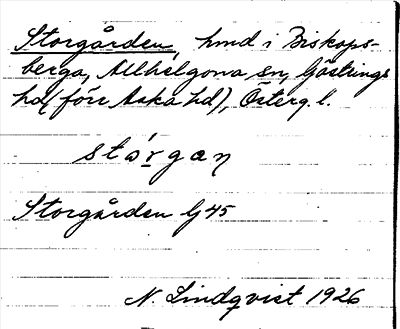 Storgården, hmd i Biskops-
berga, Allhelgona sn, Göstrings
hd (förr Aska hd), Österg. l.
stórgan
Storgården G 45
N. Lindqvist 1926